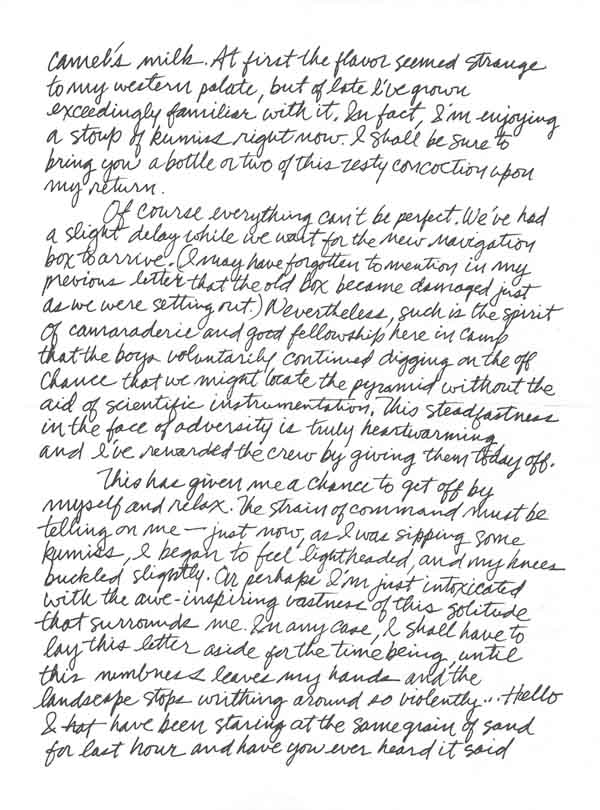 camel's milk. At first the flavor seemed strange
to my western palate, but of late I've grown
exceedingly familiar with it. In fact, I'm enjoying
a stoup of kumiss right now. I shall be sure to
bring you a bottle or two of this zesty concoction upon
my return.
Of course everything can't be perfect. We've had
a slight delay while we wait for the new navigation
box to arrive. (I may have forgotten to mention in my
previous letter that the old box became damaged just
as we were setting out.) Nevertheless, such is the spirit
of camaraderie and good fellowship here in camp
that the boys voluntarily continued digging on the off
chance that we might locate the pyramid without the
aid of scientific instrumentation. This steadfastness
in the face of adversity is truly heartwarming
and I've rewarded the crew by giving them today off.
This has given me a chance to get off by
myself and relax. The strain of command must be
telling on me – just now, as I was sipping some
kumiss, I began to feel lightheaded, and my knees
buckled slightly. Or perhaps I'm just intoxicated
with the awe-inspiring vastness of this solitude
that surrounds me. In any case, I shall have to
lay this letter aside for the time being, until
this numbness leaves my hands and the
landscape stops writhing around so violently... Hello
I hat have been staring at the same grain of sand
for last hour and have you ever heard it said